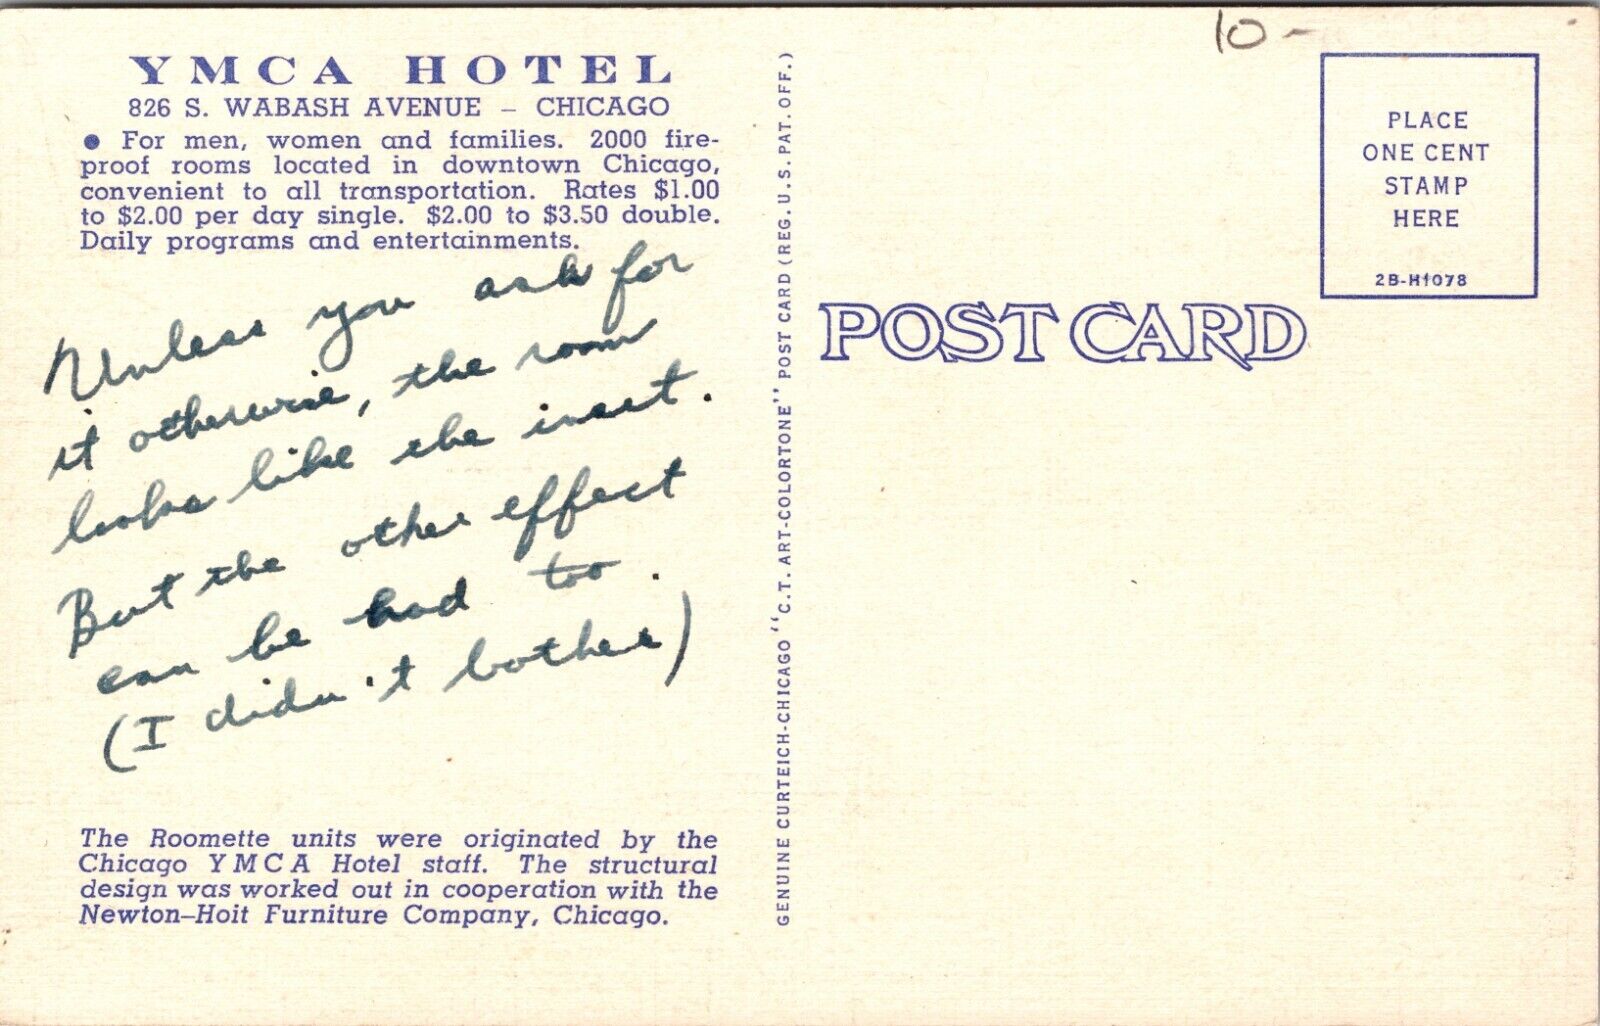 YMCA HOTEL
826 S. WABASH AVENUE – CHICAGO
● For men, women and families. 2000 fire-
proof rooms located in downtown Chicago,
convenient to all transportation. Rates $1.00
to $2.00 per day single. $2.00 to $3.50 double.
Daily programs and entertainments.
Unless you ask for
it otherwise, the room
looks like the inset.
But the other effect
can be had too.
(I didn't bother)
The Roomette units were originated by the
Chicago YMCA Hotel staff. The structural
design was worked out in cooperation with the
Newton–Hoit Furniture Company, Chicago.
GENUINE CURTEICH-CHICAGO "C.T. ART-COLORTONE" POST CARD (REG. U.S. PAT. OFF.)
10-
PLACE
ONE CENT
STAMP
HERE
2B-H1078
POST CARD